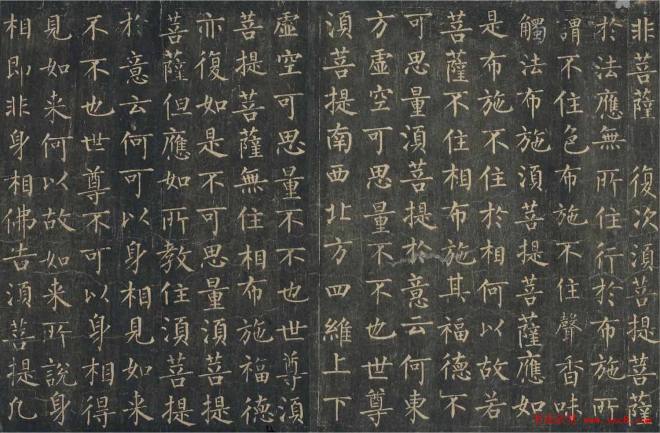 非菩薩　復次須菩提菩薩
於法應無所住行於布施所
謂不住色布施不住聲香味
觸法布施須菩提菩薩應如
是布施不住於相何以故若
菩薩不住相布施其福德不
可思量須菩提於意云何東
方虛空可思量不不也世尊
須菩提南西北方四維上下
虛空可思量不不也世尊須
菩提菩薩無住相布施福德
亦復如是不可思量須菩提
菩薩但應如所教住須菩提
於意云何可以身相見如来
不不也世尊不可以身相得
見如来何以故如来所說身
相即非身相佛告須菩提凡